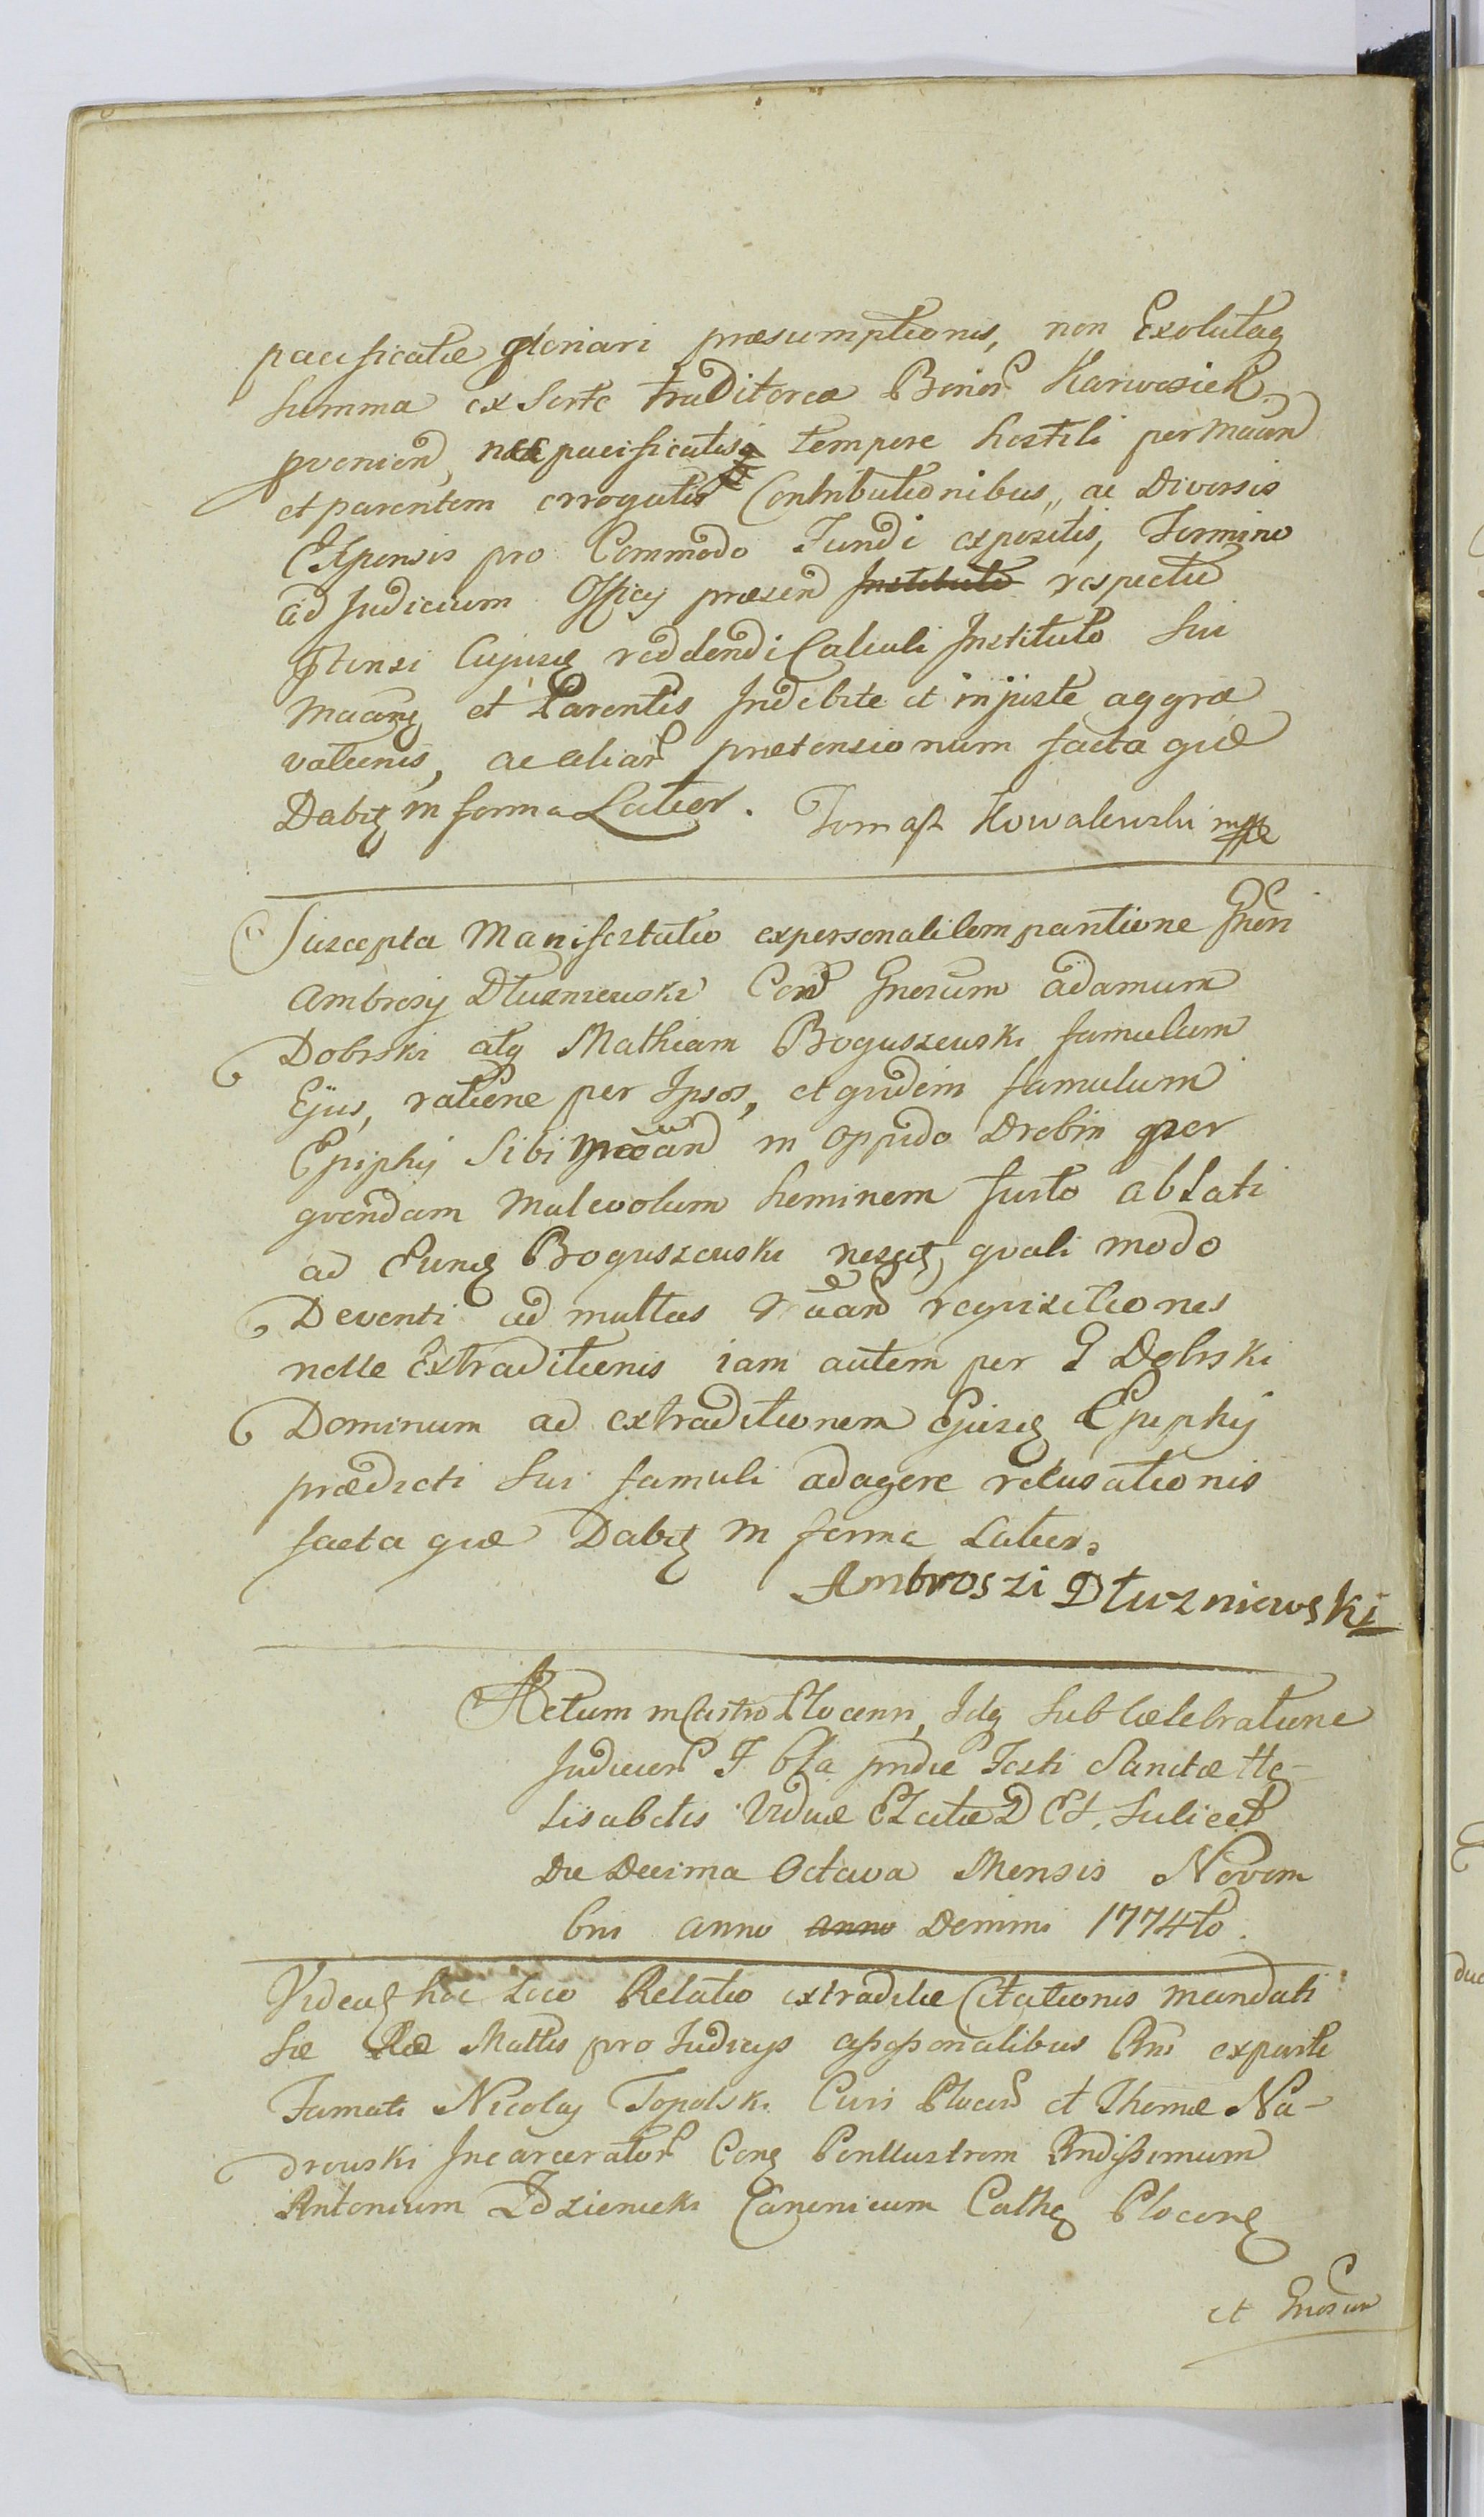 pacificatæ gloriari præsumptionis, non Exolutaq
Summa ex Sorte traditorea Bonor Karwosiek
provenien, nec pacificatisq tempore hostili per Maan
et parentem erogatis Contributionibus, ac Diversis
Expensis pro Commodo Fundi expositis, Termino
ad Judicium Officij præsen Instituto respectu
Ptensi Cujusq reddendi Calculi Instituto Sui
Maanq et Parentis Indebite et injuste aggra
vationis, ac aliar prætensionum facta quæ
Dabit in forma Latior. Tomasz Kowalewski mpp
Suscepta Manifestatio ex personali Comparitione Gnen
Ambrosij Dłuzniewski Con Gnosum Adamum
Dobrski atq Mathiam Boguszewski famulum
Ejus, ratione per Ipsos, et quidem famulum
Epiphij Sibi Maan in Oppido Drobin per
quendam Malevolum hominem furto ablati
ad Eunq Boguszewski nescit, quali modo
Deventi ad multas Maan requisitiones
nolle Extraditionis iam autem per G Dobrski
Dominum ad extraditionem Ejusq Epiphij
prædicti Sui famuli adagere recusationis
facta quæ Dabit in forma Latior.
Ambroszi Dłuzniewski
Actum in Castro Plocenn, Idq Sub Cælebratione
Judicior F bla pridie Festi Sanctæ He-
lisabetis Viduæ Elatæ D Et, Scilicet
Die Decima Octava Mensis Novem
bris Anno Anno Domini 1774to.
Videat hoc Loco Relatio extraditæ Citationis mandati
Sæ Ræ Mattis pro Judicijs assessorialibus Rni exparte
Famati Nicolaj Topolski Civis Plocen et Thomæ Na-
drowski Incarcerator Conq Perillustrem Rndissimum
Antonium Zdziemeki Canonicum Cathq Plocenq
et Gnosum